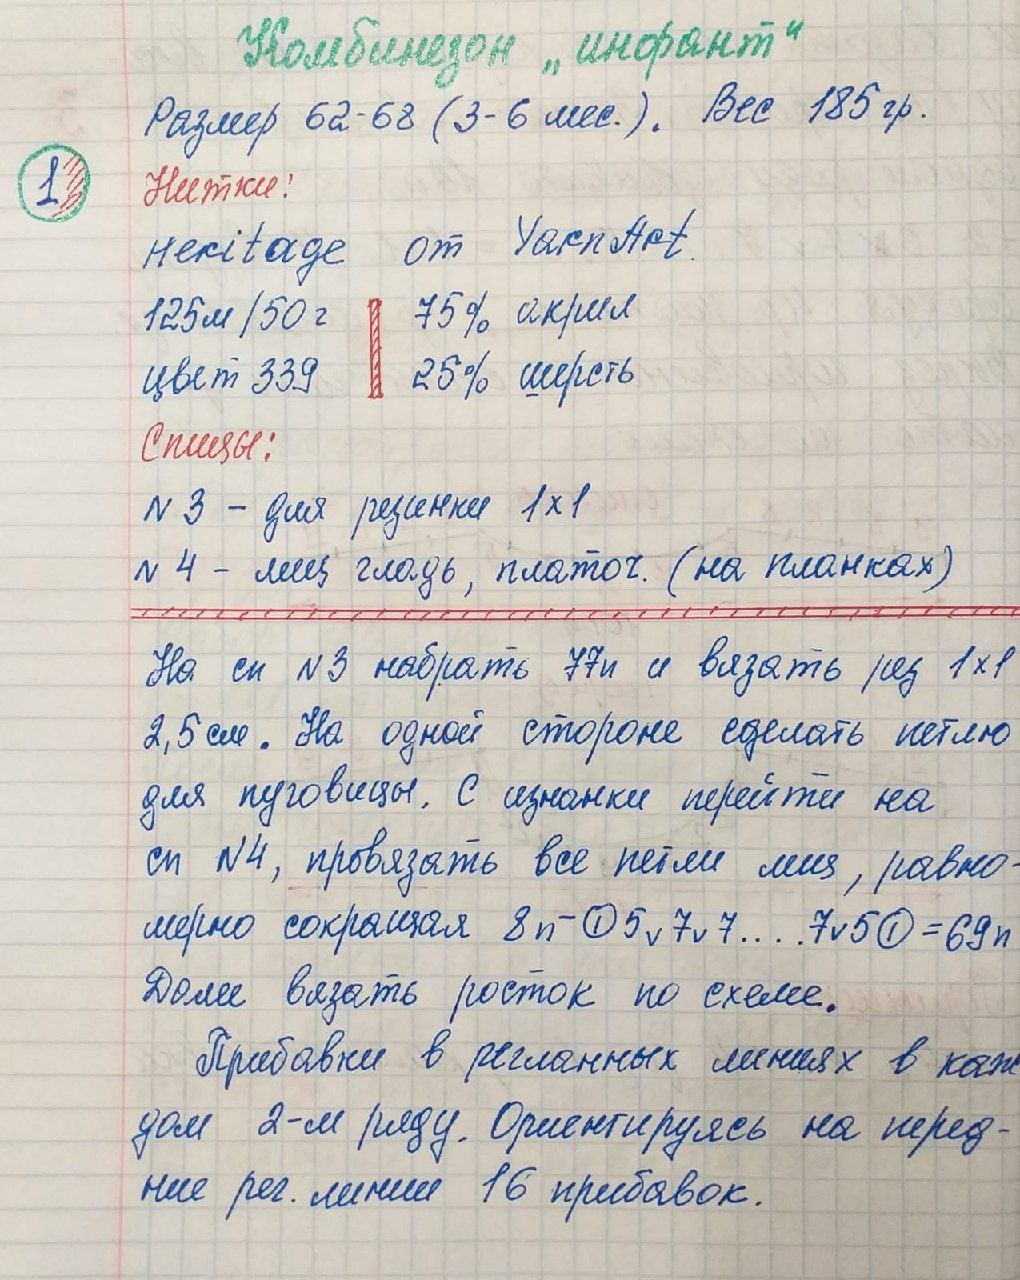 Комбинезон „инфант“
Размер 62-68 (3-6 мес.). Вес 185 гр.
1
Нитки:
Heritage от YarnArt.
125м/50г 75% акрил
цвет 339 25% шерсть
Спицы:
N 3 - для резинки 1х1
N 4 - лиц гладь, платоч. (на планках)
На сп N3 набрать 77п и вязать рез 1х1
2,5 см. На одной стороне сделать петлю
для пуговицы. С изнанки перейти на
сп N4, провязать все петли лиц, равно-
мерно сокращая 8п - ① 5 v 7 v 7 .... 7 v 5 ① = 69п
Далее вязать росток по схеме.
Прибавки в регланных линиях в каж
дом 2-м ряду. Ориентируясь на перед-
ние рег. линии 16 прибавок.